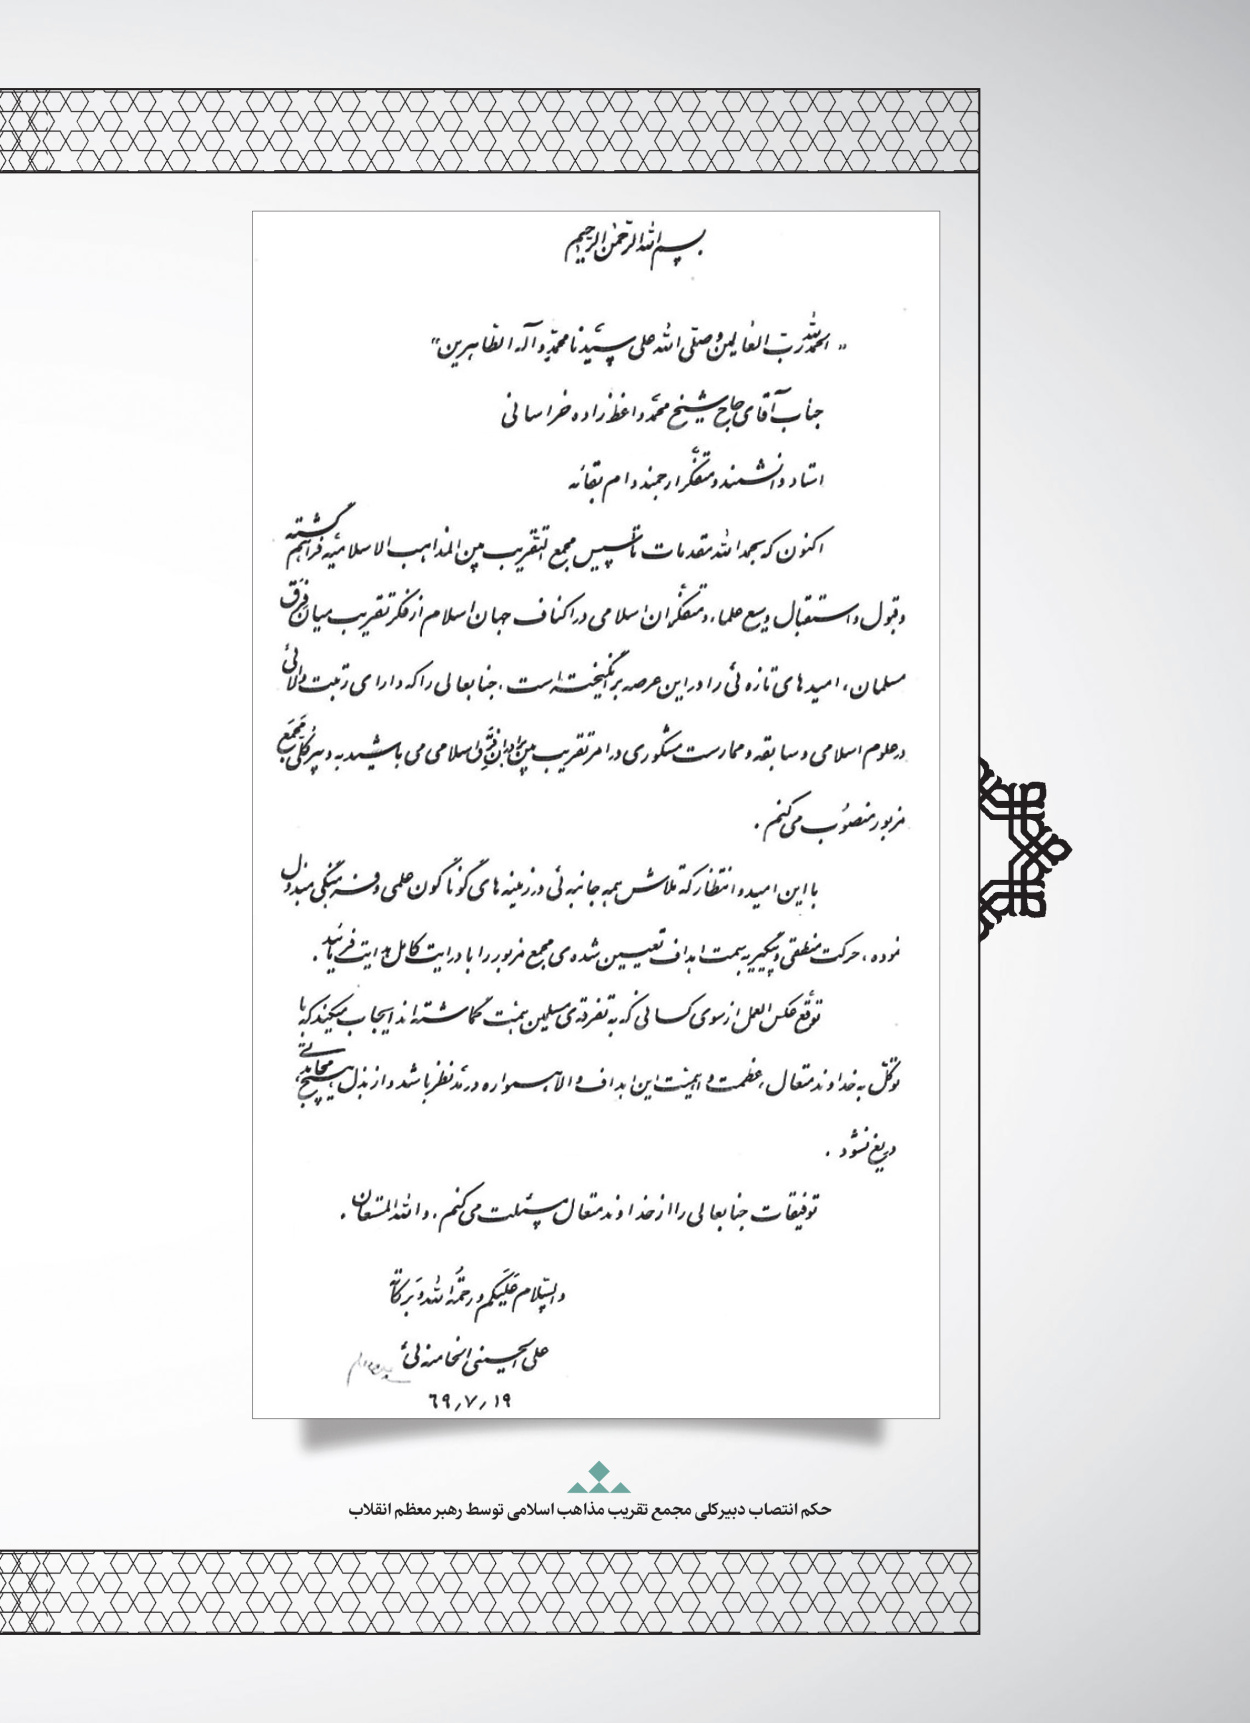 بسم الله الرحمن الرحیم
«الحمدلله رب العالمین وصلّی الله علی سیّدنا محمّد و آله الطّاهرین»
جناب آقای حاج شیخ محمّد واعظ زاده خراسانی
استاد دانشمند و متفکّر ارجمند دام بقائه
اکنون که بحمدالله مقدمات تأسیس مجمع التقریب بین المذاهب الاسلامیّه فراهم گشته
و قبول و استقبال وسیع علماء و متفکّران اسلامی در اکناف جهان اسلام از فکر تقریب میان فِرَق
مسلمان، امیدهای تازه ئی را در این عرصه برانگیخته است، جنابعالی را که دارای رتبت والائی
در علوم اسلامی و سابقه و ممارست مشکوری در امر تقریب بین برادران فِرَق اسلامی می باشید به دبیر کلّی مجمع
مزبور منصوب می کنم.
با این امید و انتظار که تلاش همه جانبه ئی در زمینه های گوناگون علمی و فرهنگی مبذول
نموده، حرکت منطقی و پیگیر به سمت اهداف تعیین شده ی مجمع مزبور را با درایت کامل هدایت فرمائید.
توقّع عکس العمل از سوی کسانی که به تفرقه ی مسلمین همّت گماشته اند ایجاب میکند که با
توکّل به خداوند متعال، عظمت و اهمیّت این اهداف والا همواره در مدّ نظر باشد و از بذل هیچ مجاهدتی
دریغ نشود.
توفیقات جنابعالی را از خداوند متعال مسئلت می کنم. والله المستعان.
والسّلام علیکم ورحمة الله وبرکاته
علی الحسینی الخامنه ئی
۶۹٫۷٫۱۹
حکم انتصاب دبیرکلی مجمع تقریب مذاهب اسلامی توسط رهبر معظم انقلاب